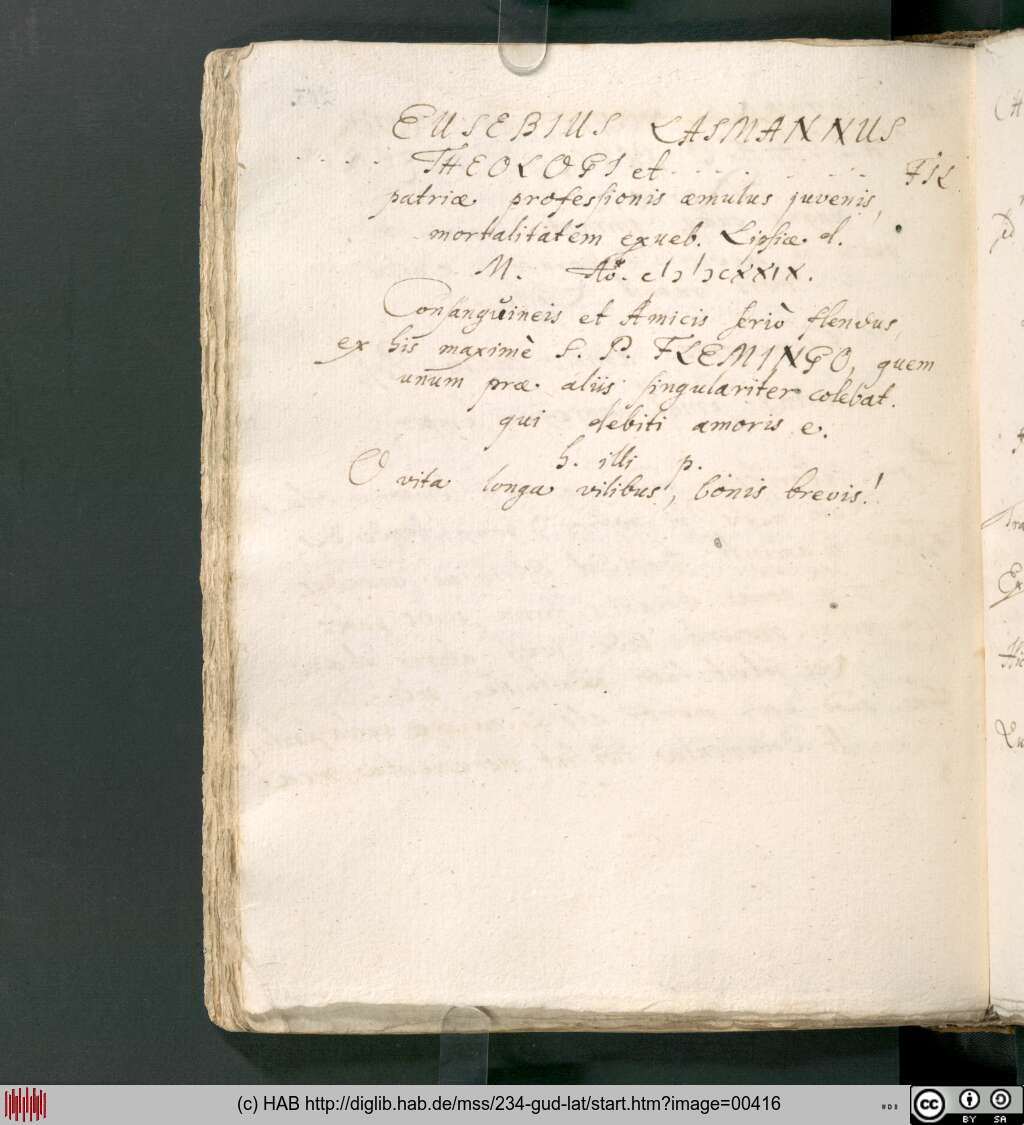 EUSEBIUS LASMANNUS
. . . . . THEOLOGI et . . . . . . . . . FIL
patriæ professionis æmulus juvenis,
mortalitatem exueb. Lipsiæ d.
M. Aõ. CIↃ IↃCXXIX.
Consangvineis et Amicis seriò flendus,
ex his maximè S. P. FLEMINGO, quem
unum præ aliis singulariter colebat.
qui debiti amoris e.
h. illi p.
O vita longa vilibus, bonis brevis!
(c) HAB http://diglib.hab.de/mss/234-gud-lat/start.htm?image=00416
cc BY SA